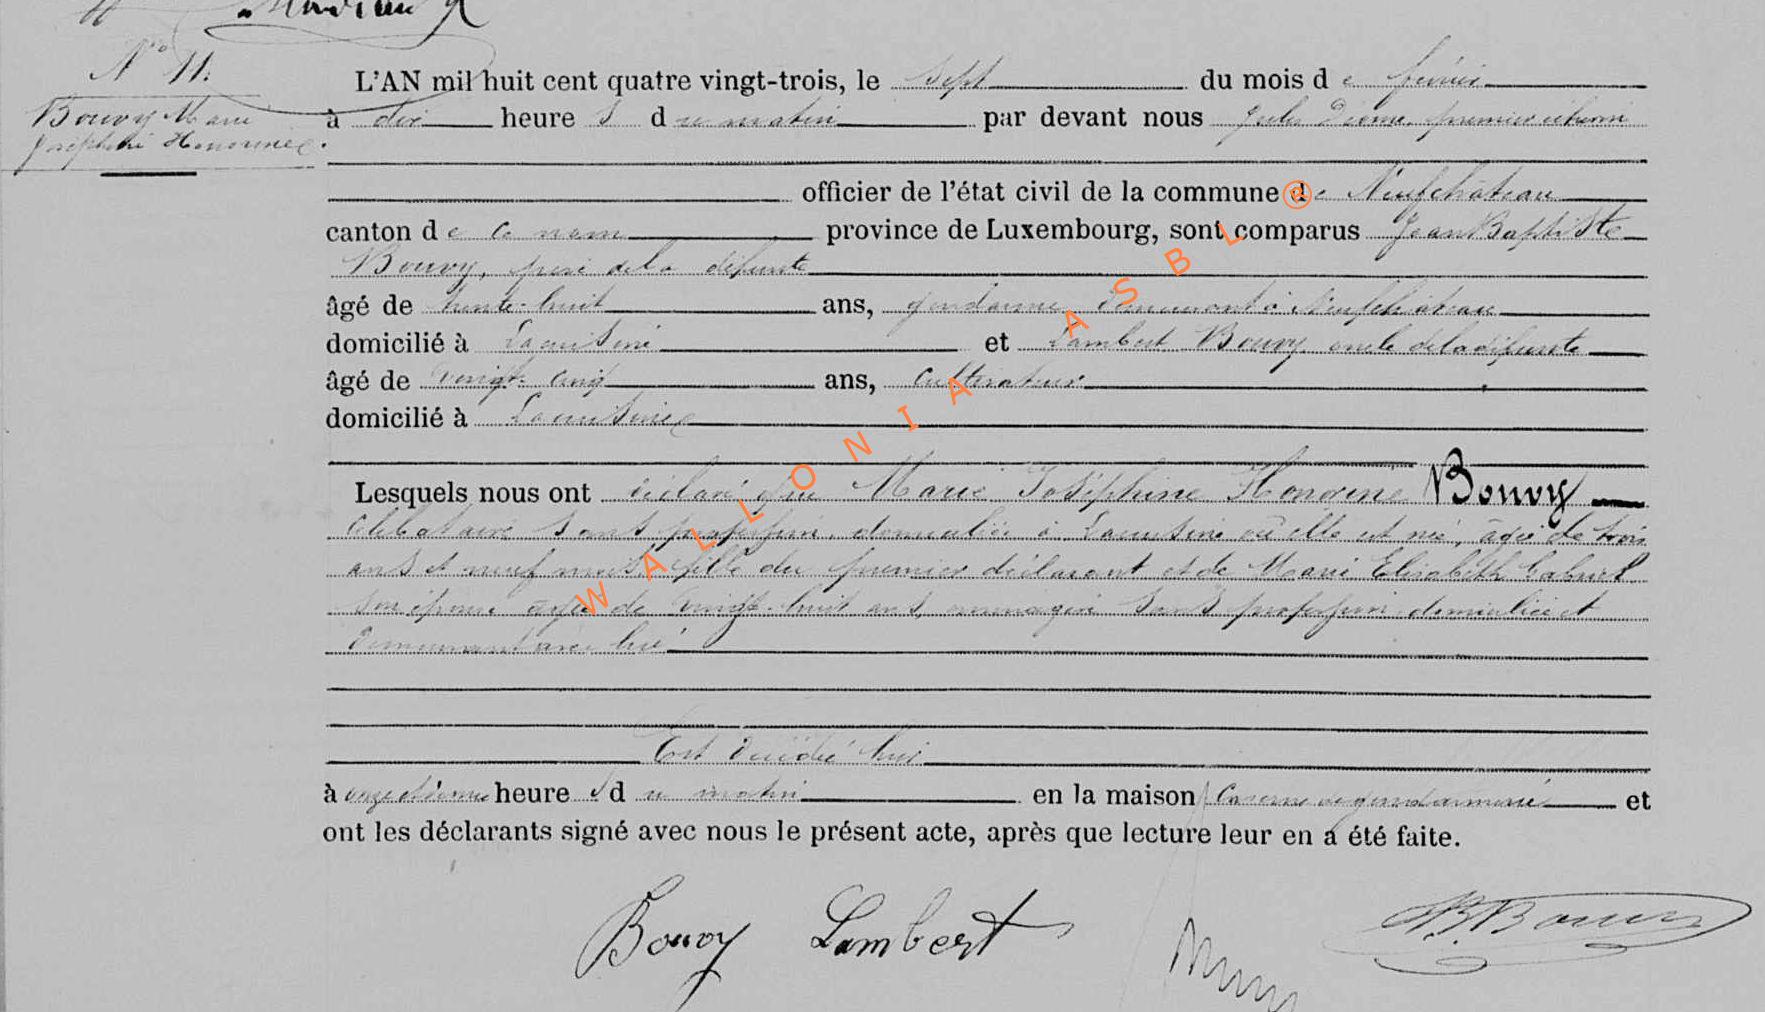 N° 11.
Bouvy Marie
Joséphine Honorine.
L'AN mil huit cent quatre vingt-trois, le sept du mois de février
à dix heures du matin par devant nous Jules premier échevin
officier de l'état civil de la commune de Neufchâteau
canton de ce nom province de Luxembourg, sont comparus Jean Baptiste
Bouvy, père de la défunte
âgé de trente-huit ans, gendarme demeurant à Neufchâteau
domicilié à Lacuisine et Lambert Bouvy oncle de la défunte
âgé de vingt-cinq ans, cultivateur
domicilié à Lacuisine
Lesquels nous ont déclaré que Marie Joséphine Honorine Bouvy
célibataire sans profession, domiciliée à Lacuisine où elle est née, âgée de trois
ans et neuf mois, fille du premier déclarant et de Marie Elisabeth Gabriel
son épouse âgée de vingt-huit ans, ménagère sans profession domiciliée et
demeurant avec lui
Est décédée hier
à onze et demie heures du matin en la maison caserne de gendarmerie et
ont les déclarants signé avec nous le présent acte, après que lecture leur en a été faite.
Bouvy Lambert
JB. Bouvy
WALLONIA ASBL ®